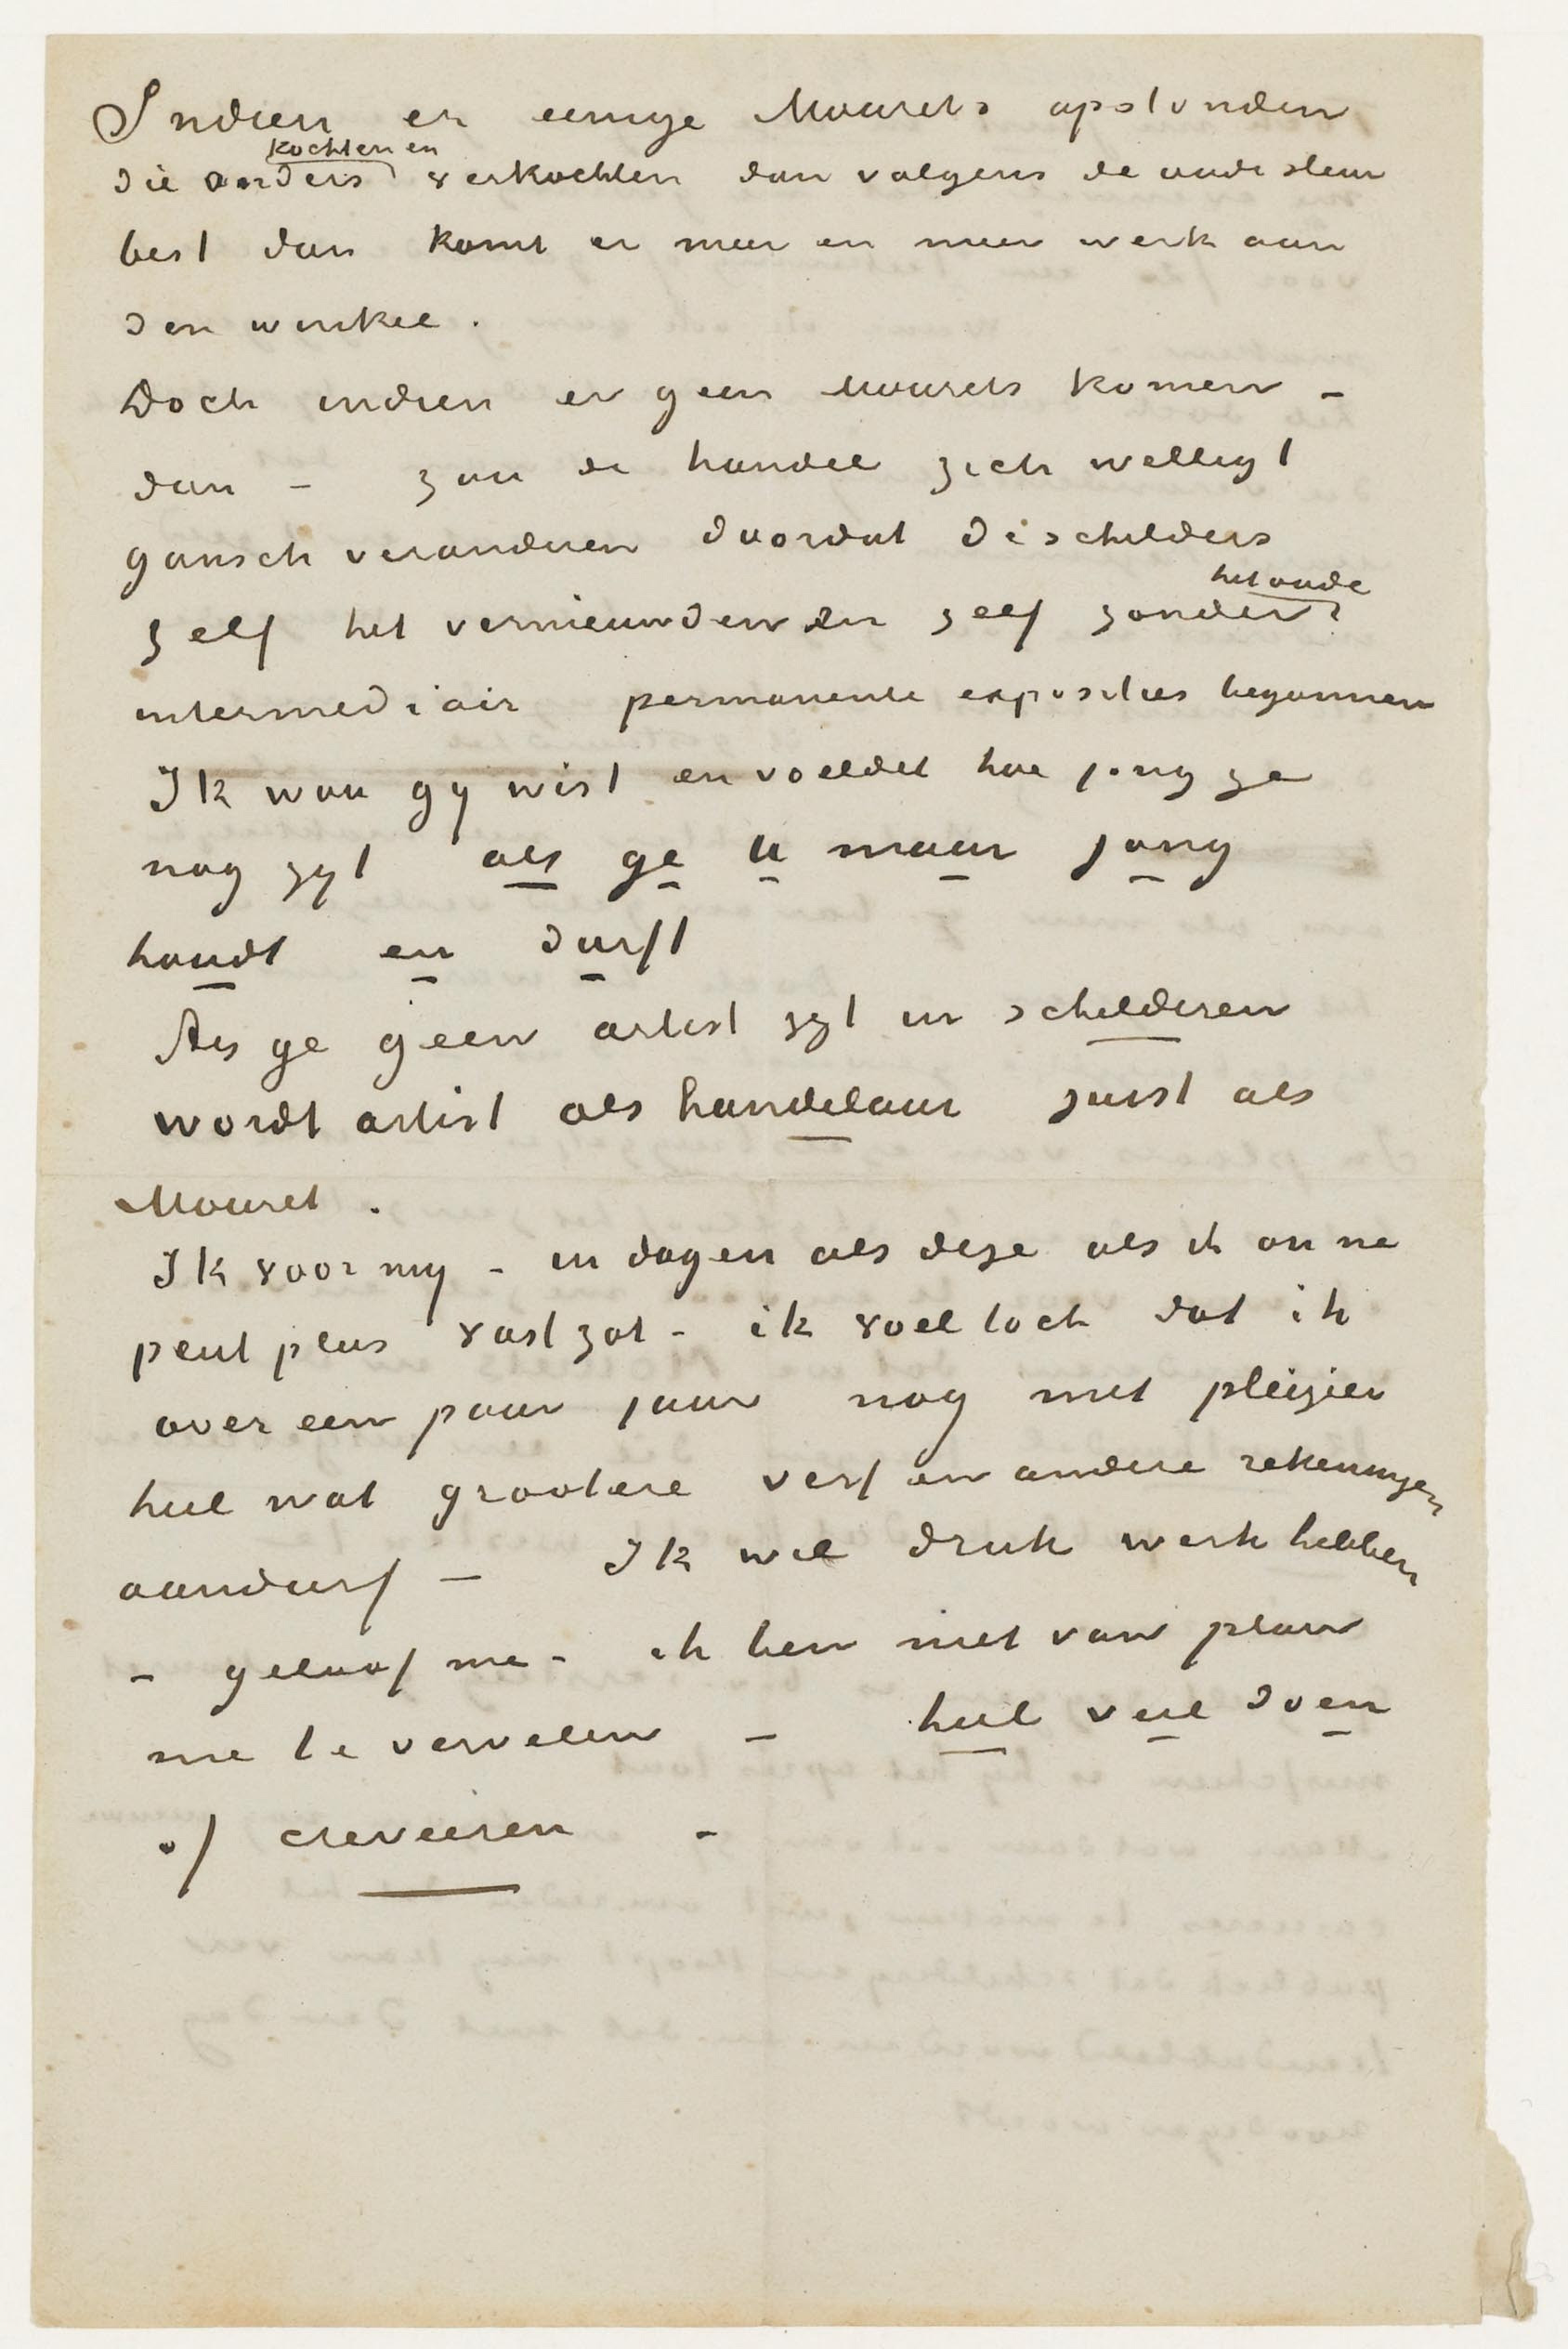 Indien er eenige Mourets opstonden
die anders kochten en verkochten dan volgens de oude sleur
best dan komt er meer en meer werk aan
den winkel.
Doch indien er geen Mourets komen –
dan – zou de handel zich welligt
gansch veranderen doordat de schilders
zelf het vernieuwden en zelf zonder het oude
intermediair permanente exposities begonnen
Ik wou gij wist en voeldet hoe jong ge
nog zijt als ge u maar jong
houdt en durft
Als ge geen artist zijt in schilderen
wordt artist als handelaar juist als
Mouret.
Ik voor mij – in dagen als deze als ik on ne
peut plus vast zat – ik voel toch dat ik
over een paar jaar nog met pleizier
heel wat grootere verf en andere rekeningen
aandurf – Ik wil druk werk hebben
– geloof me – ik ben niet van plan
me te vervelen – heel veel doen
of creveeren –